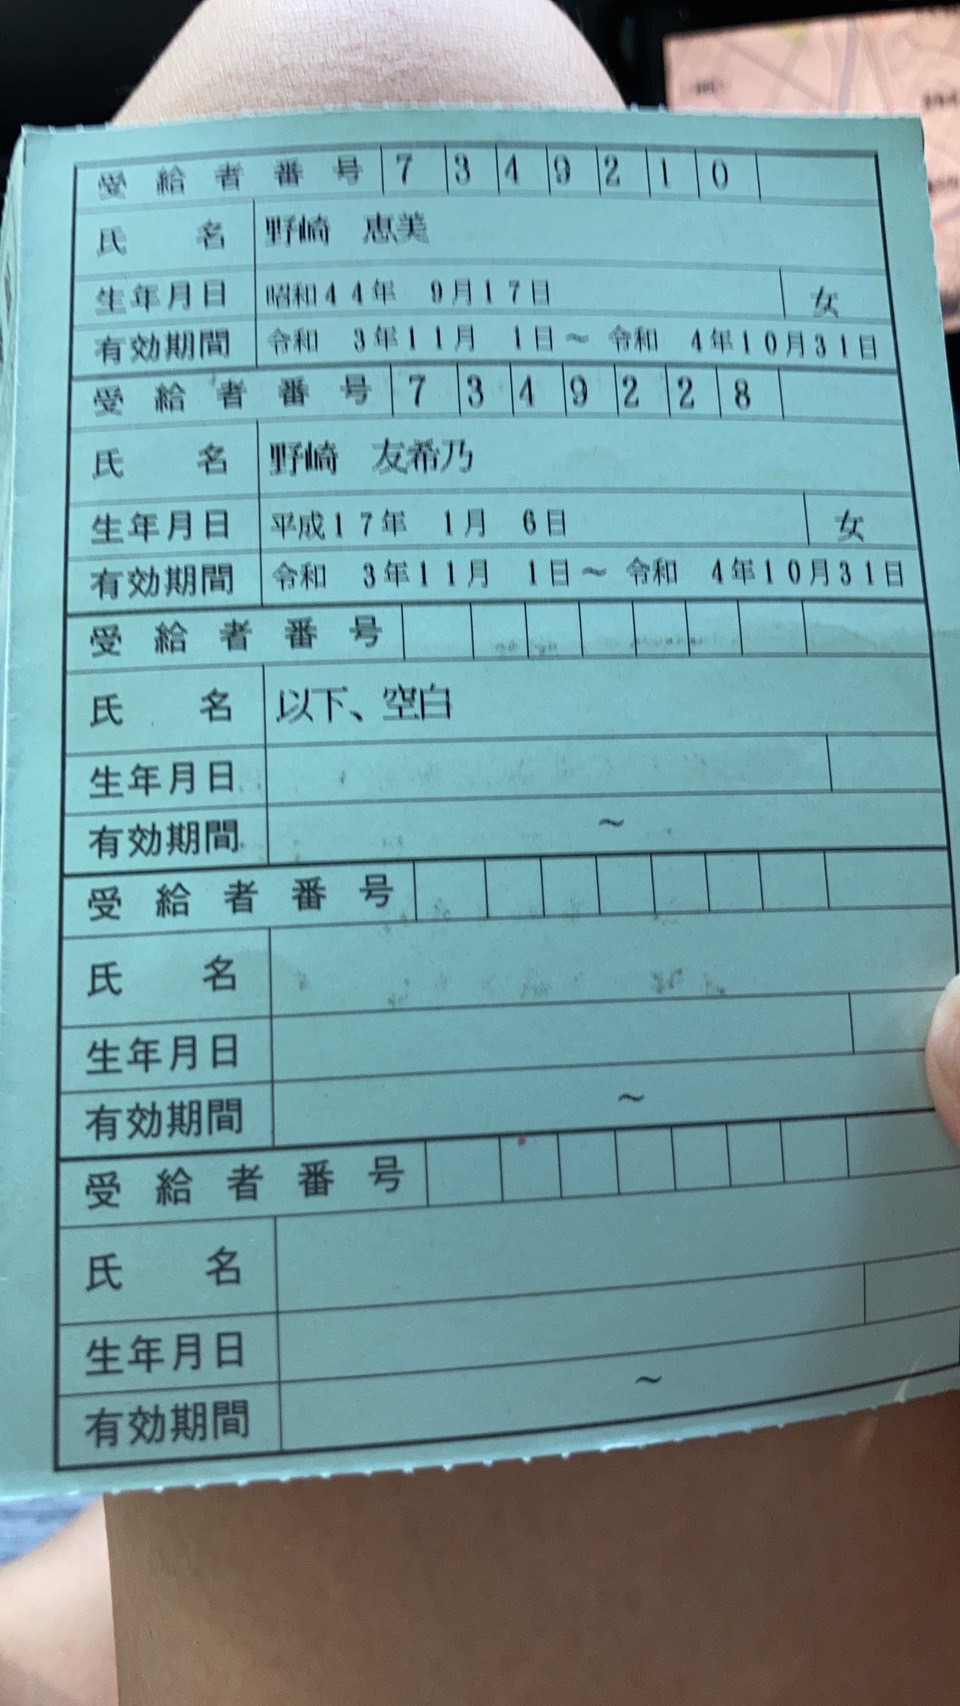 受給者番号 7349210
氏名 野崎 恵美
生年月日 昭和44年 9月17日 女
有効期間 令和 3年11月 1日～令和 4年10月31日
受給者番号 7349228
氏名 野崎 友希乃
生年月日 平成17年 1月 6日 女
有効期間 令和 3年11月 1日～令和 4年10月31日
受給者番号
氏名 以下、空白
生年月日
有効期間 ～
受給者番号
氏名
生年月日
有効期間 ～
受給者番号
氏名
生年月日
有効期間 ～